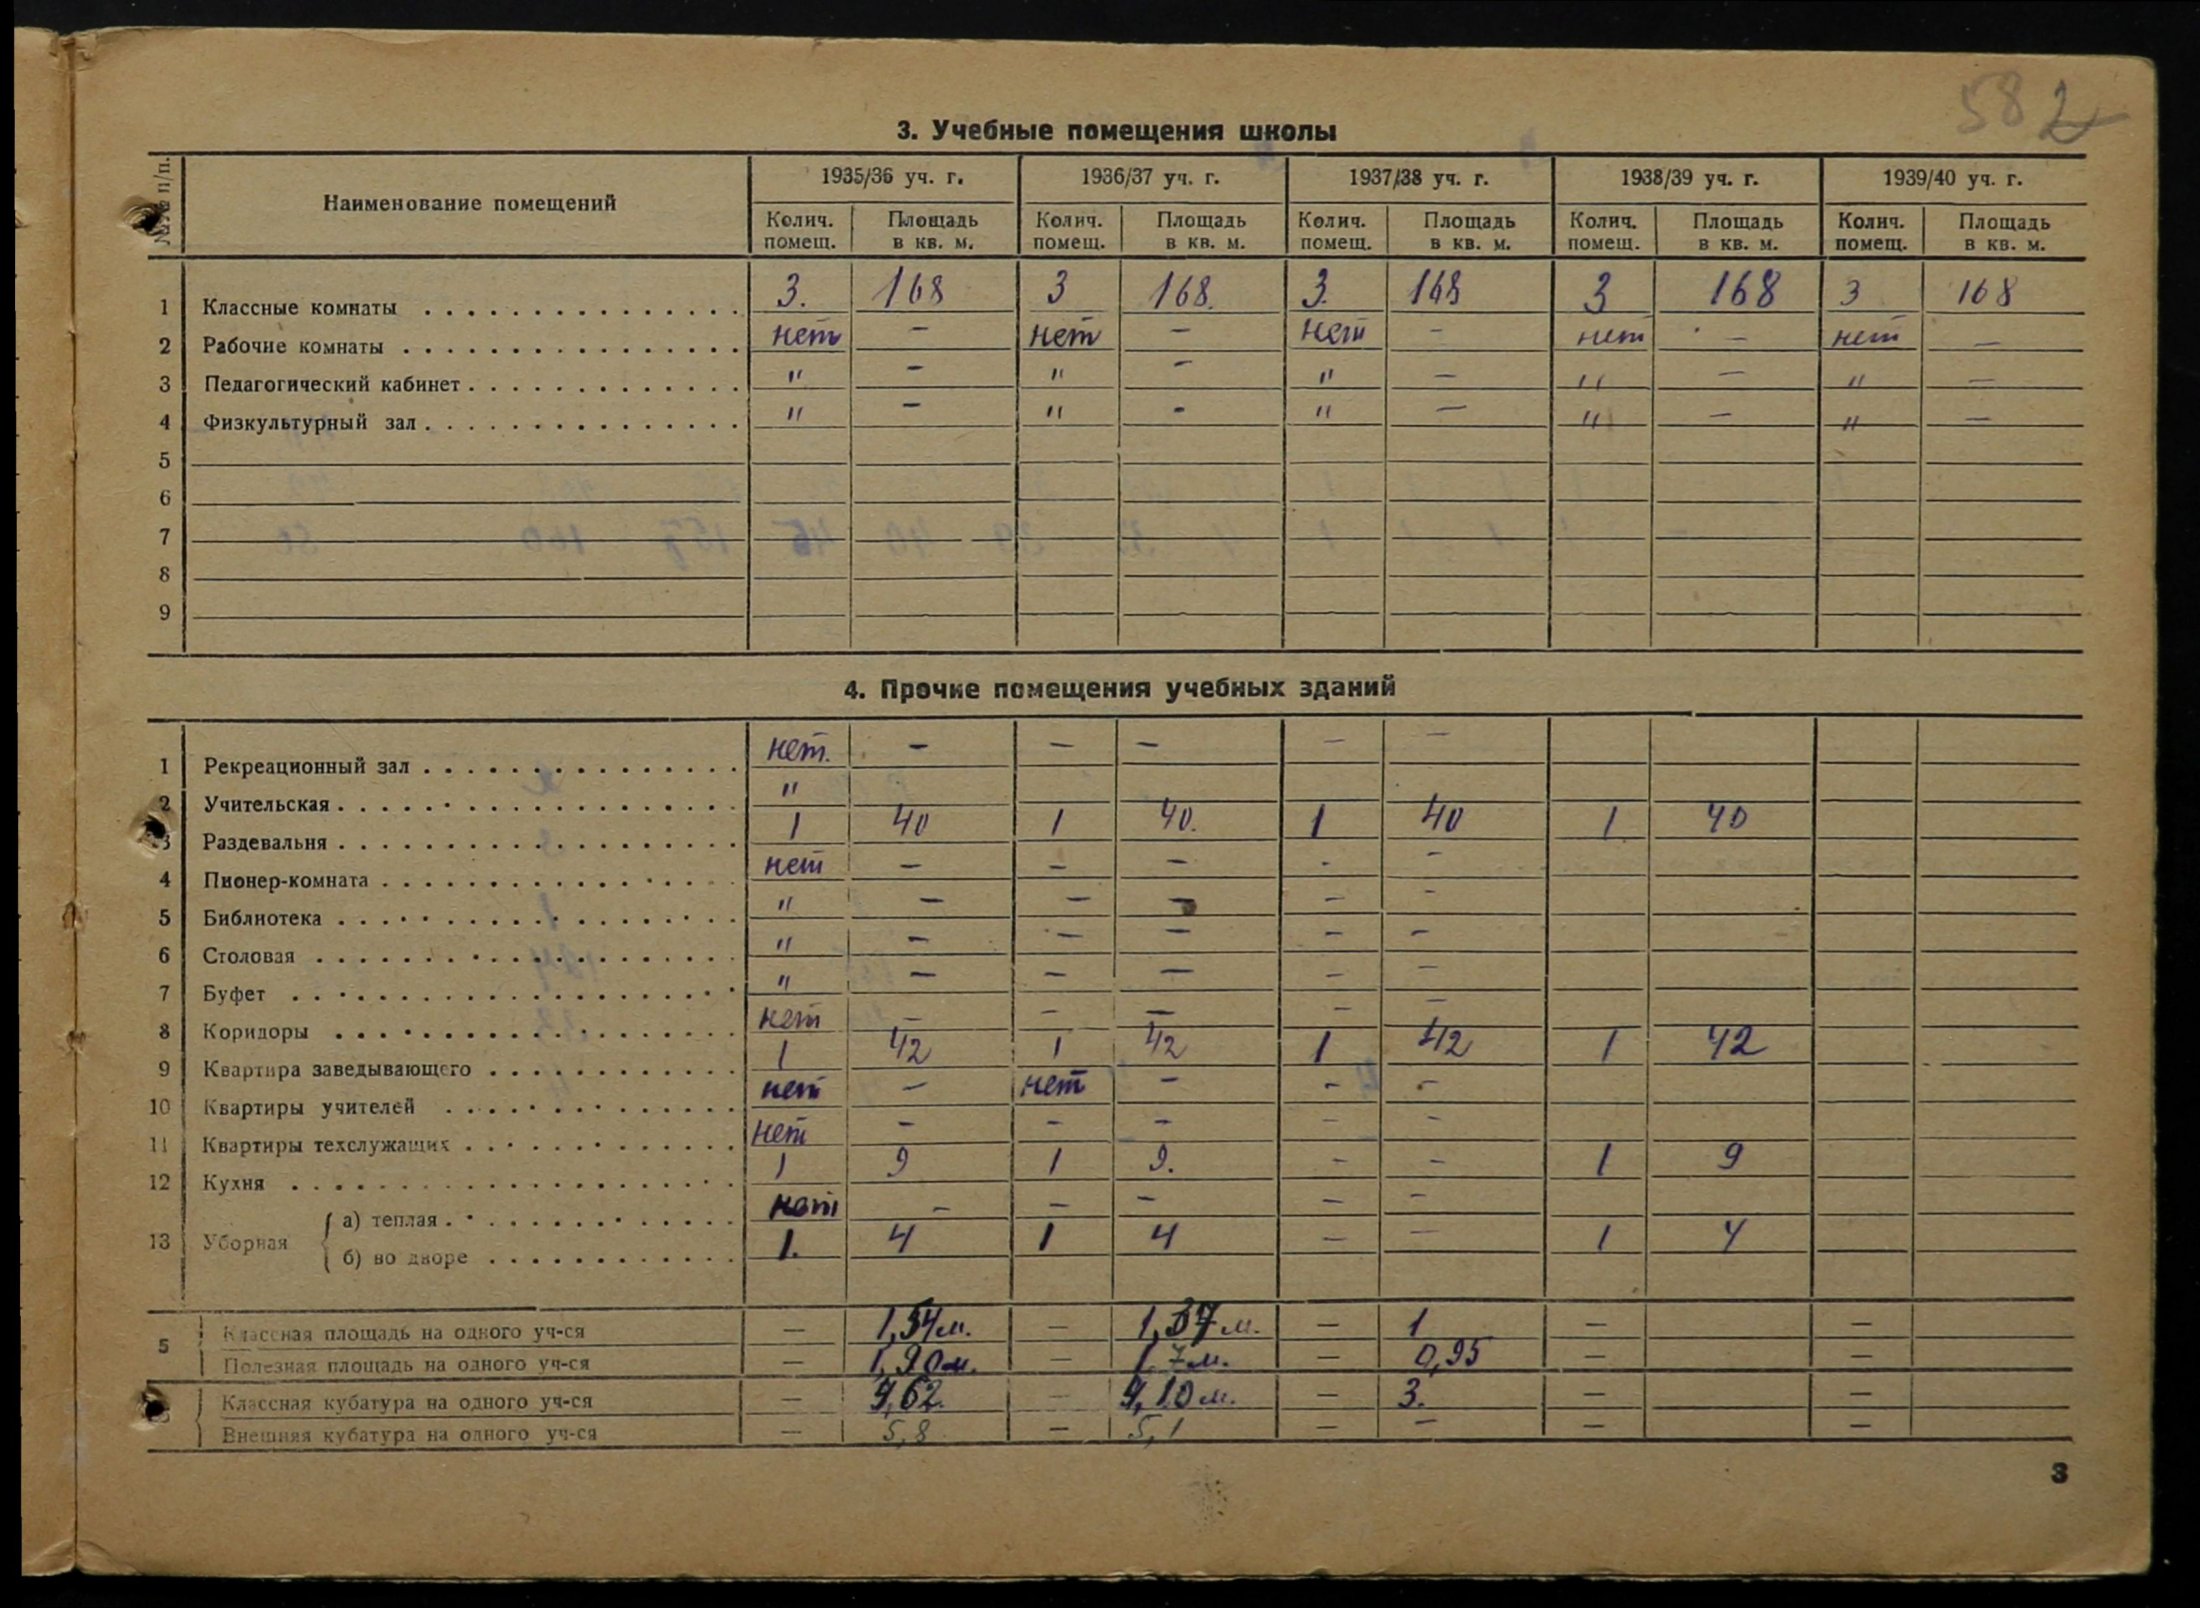 582
3. Учебные помещения школы
№№ п/п. Наименование помещений 1935/36 уч. г. 1936/37 уч. г. 1937/38 уч. г. 1938/39 уч. г. 1939/40 уч. г.
Колич. помещ. Площадь в кв. м. Колич. помещ. Площадь в кв. м. Колич. помещ. Площадь в кв. м. Колич. помещ. Площадь в кв. м. Колич. помещ. Площадь в кв. м.
1 Классные комнаты 3. 168 3 168. 3. 168 3 168 3 168
2 Рабочие комнаты нет – нет – нет – нет – нет –
3 Педагогический кабинет " – " – " – " – " –
4 Физкультурный зал " – " – " – " – " –
5
6
7
8
9
4. Прочие помещения учебных зданий
1 Рекреационный зал нет. – – – – –
2 Учительская "
3 Раздевальня 1 40 1 40. 1 40 1 40
4 Пионер-комната нет – – – – –
5 Библиотека " – – – – –
6 Столовая " – – – – –
7 Буфет " – – – – –
8 Коридоры нет – – – – –
9 Квартира заведывающего 1 42 1 42 1 42 1 42
10 Квартиры учителей нет – нет – – –
11 Квартиры техслужащих нет – – – – –
12 Кухня 1 9 1 9. – – 1 9
13 Уборная а) теплая нет – – – – –
б) во дворе 1. 4 1 4 – – 1 4
5 Классная площадь на одного уч-ся — 1,54 м. — 1,37 м. — 1 — —
Полезная площадь на одного уч-ся — 1,90 м. — 1,7 м. — 0,95 — —
Классная кубатура на одного уч-ся — 4,62. — 4,10 м. — 3. — —
Внешняя кубатура на одного уч-ся — 5,8 — 5,1 — – — —
3